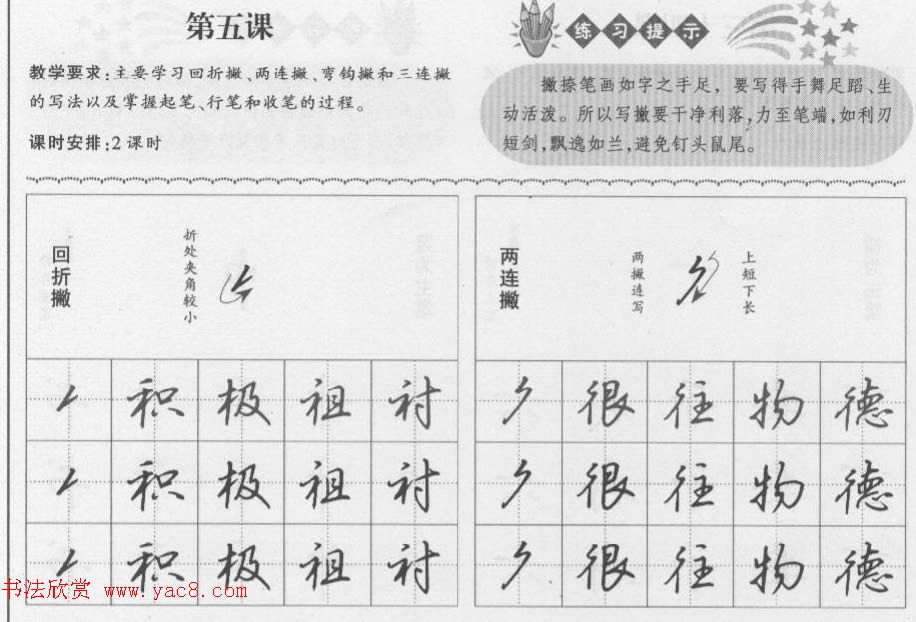 第五课
教学要求:主要学习回折撇、两连撇、弯钩撇和三连撇
的写法以及掌握起笔、行笔和收笔的过程。
课时安排:2课时
练习提示
撇捺笔画如字之手足，要写得手舞足蹈、生
动活泼。所以写撇要干净利落,力至笔端,如利刃
短剑,飘逸如兰,避免钉头鼠尾。
回折撇
折处夹角较小
两连撇
两撇连写
上短下长
积 极 祖 衬
很 往 物 德
积 极 祖 衬
很 往 物 德
积 极 祖 衬
很 往 物 德
书法欣赏 www.yac8.com